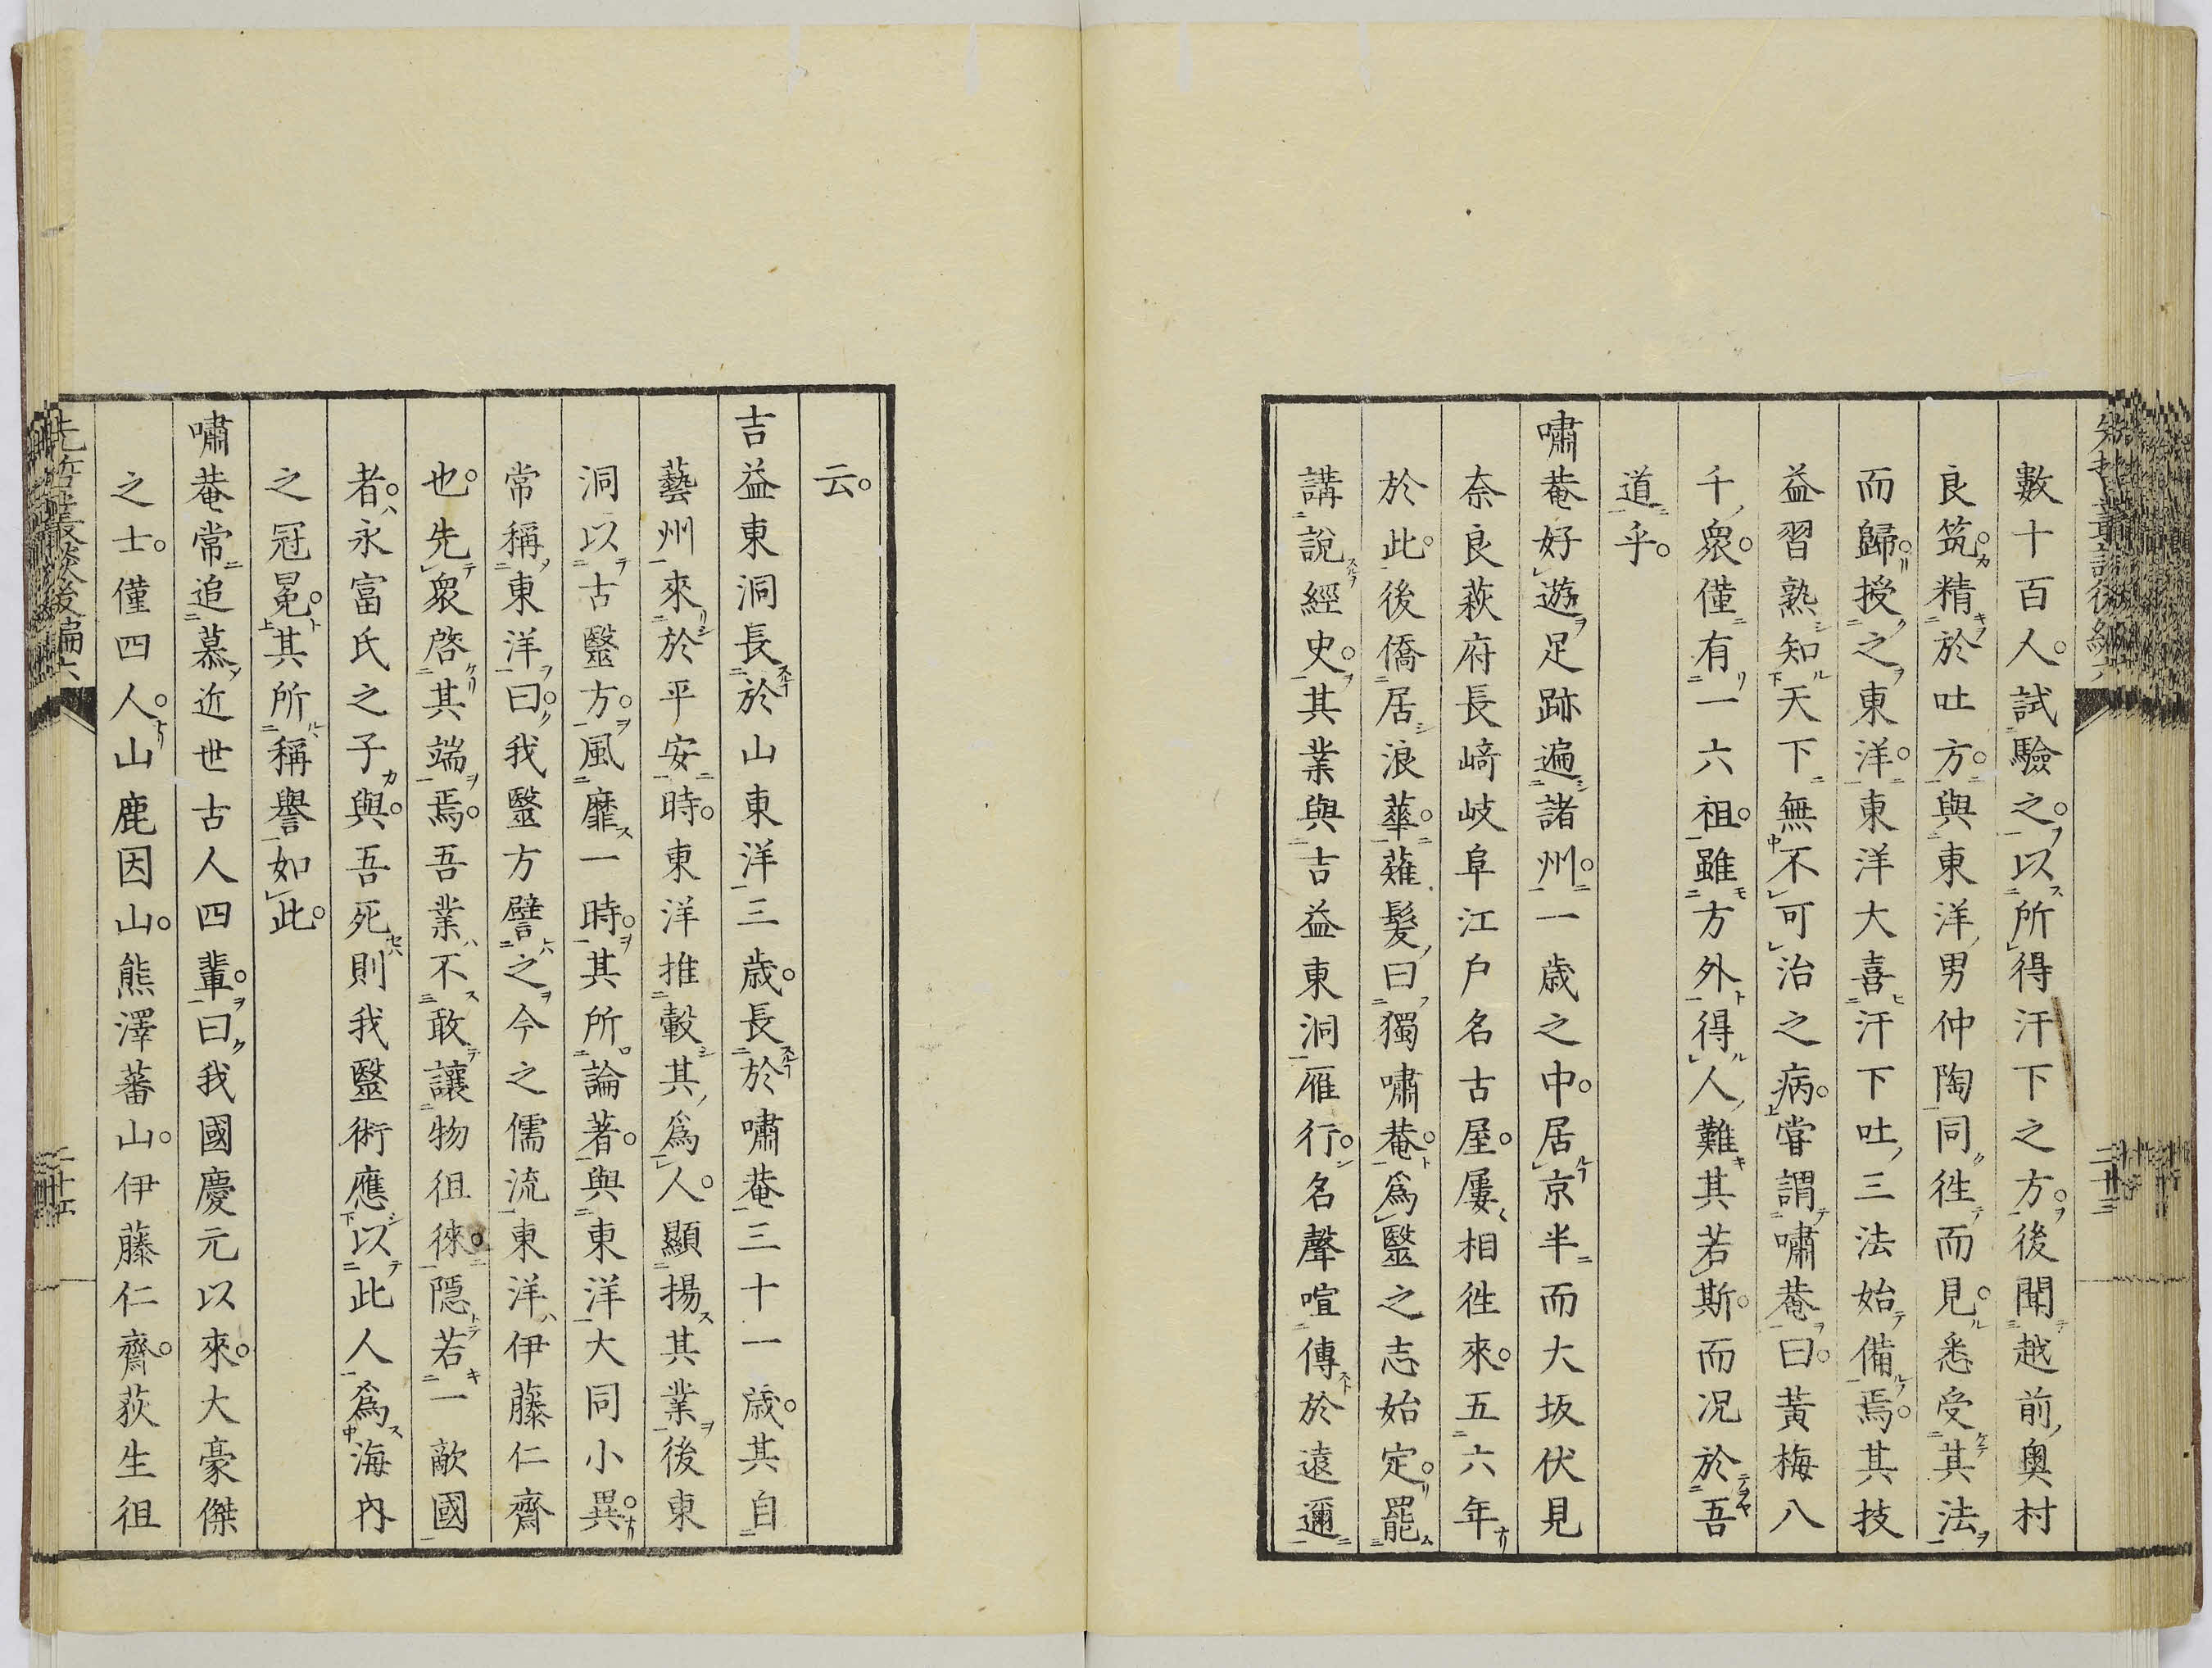 數十百人。試驗之。以所得汗下之方。後聞越前奧村
良筑。精於吐方。與東洋男仲陶同徃而見。悉受其法
而歸。授之東洋。東洋大喜汗下吐三法始備焉。其技
益習熟知天下無不可治之病。嘗謂嘯菴曰。黃梅八
千衆。僅有一六祖。雖方外得人難其若斯。而况於吾
道乎。
嘯菴好遊足跡遍諸州。一歲之中。居京半而大坂伏見
奈良萩府長崎岐阜江戶名古屋。屢相徃來。五六年
於此。後僑居浪華。薙髮曰獨嘯菴。爲毉之志始定。罷
講說經史。其業與吉益東洞雁行。名聲喧傳於遠邇
云。
吉益東洞長於山東洋三歲。長於嘯菴三十一歲。其自
藝州來於平安時。東洋推轂其爲人。顯揚其業後東
洞以古毉方。風靡一時。其所論著。與東洋大同小異。
常稱東洋曰。我毉方譬之今之儒流東洋伊藤仁齋
也。先衆啓其端焉。吾業不敢讓物徂徠。隱若一敵國
者。永富氏之子與。吾死則我毉術應以此人爲海內
之冠冕。其所稱譽如此。
嘯菴常追慕近世古人四輩。曰我國慶元以來。大豪傑
之士。僅四人。山鹿因山。熊澤蕃山。伊藤仁齋。荻生徂
先哲叢談後編六